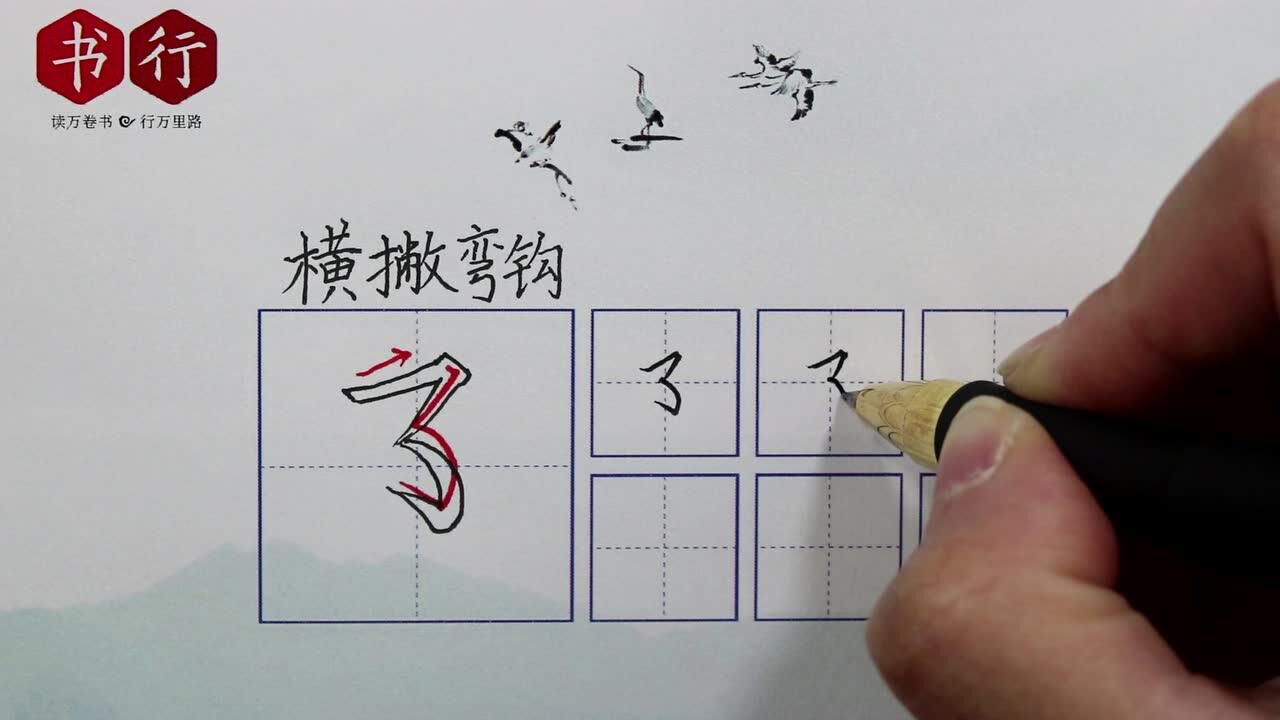 书行
读万卷书 行万里路
横撇弯钩